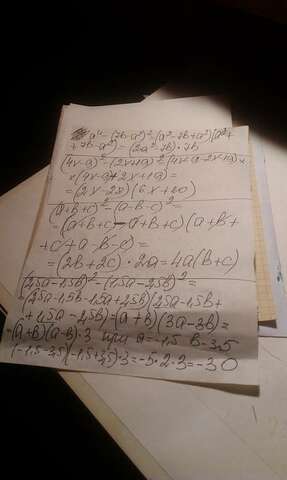 a⁴-(7b-a²)²=(a²-7b+a²)(a²+
+7b-a²)=(2a²-7b)·7b
(4x-a)²-(2x+a)²=(4x-a-2x+a)×
×(4x-a+2x+a)=
=(2x-2a)(6x+20)
(a+b+c)²-(a-b-c)²=
=(a+b+c-a+b+c)(a+b+
+c+a-b-c)=
=(2b+2c)·2a=4a(b+c)
(2,5a-1,5b)²-(1,5a-2,5b)²=
(2,5a-1,5b-1,5a+2,5b)(2,5a-1,5b+
+1,5a-2,5b)=(a+b)(3a-3b)=
=(a+b)(a-b)·3 при a=-1,5 b=-3,5
(-1,5-3,5)(-1,5+3,5)·3=-5·2·3=-30